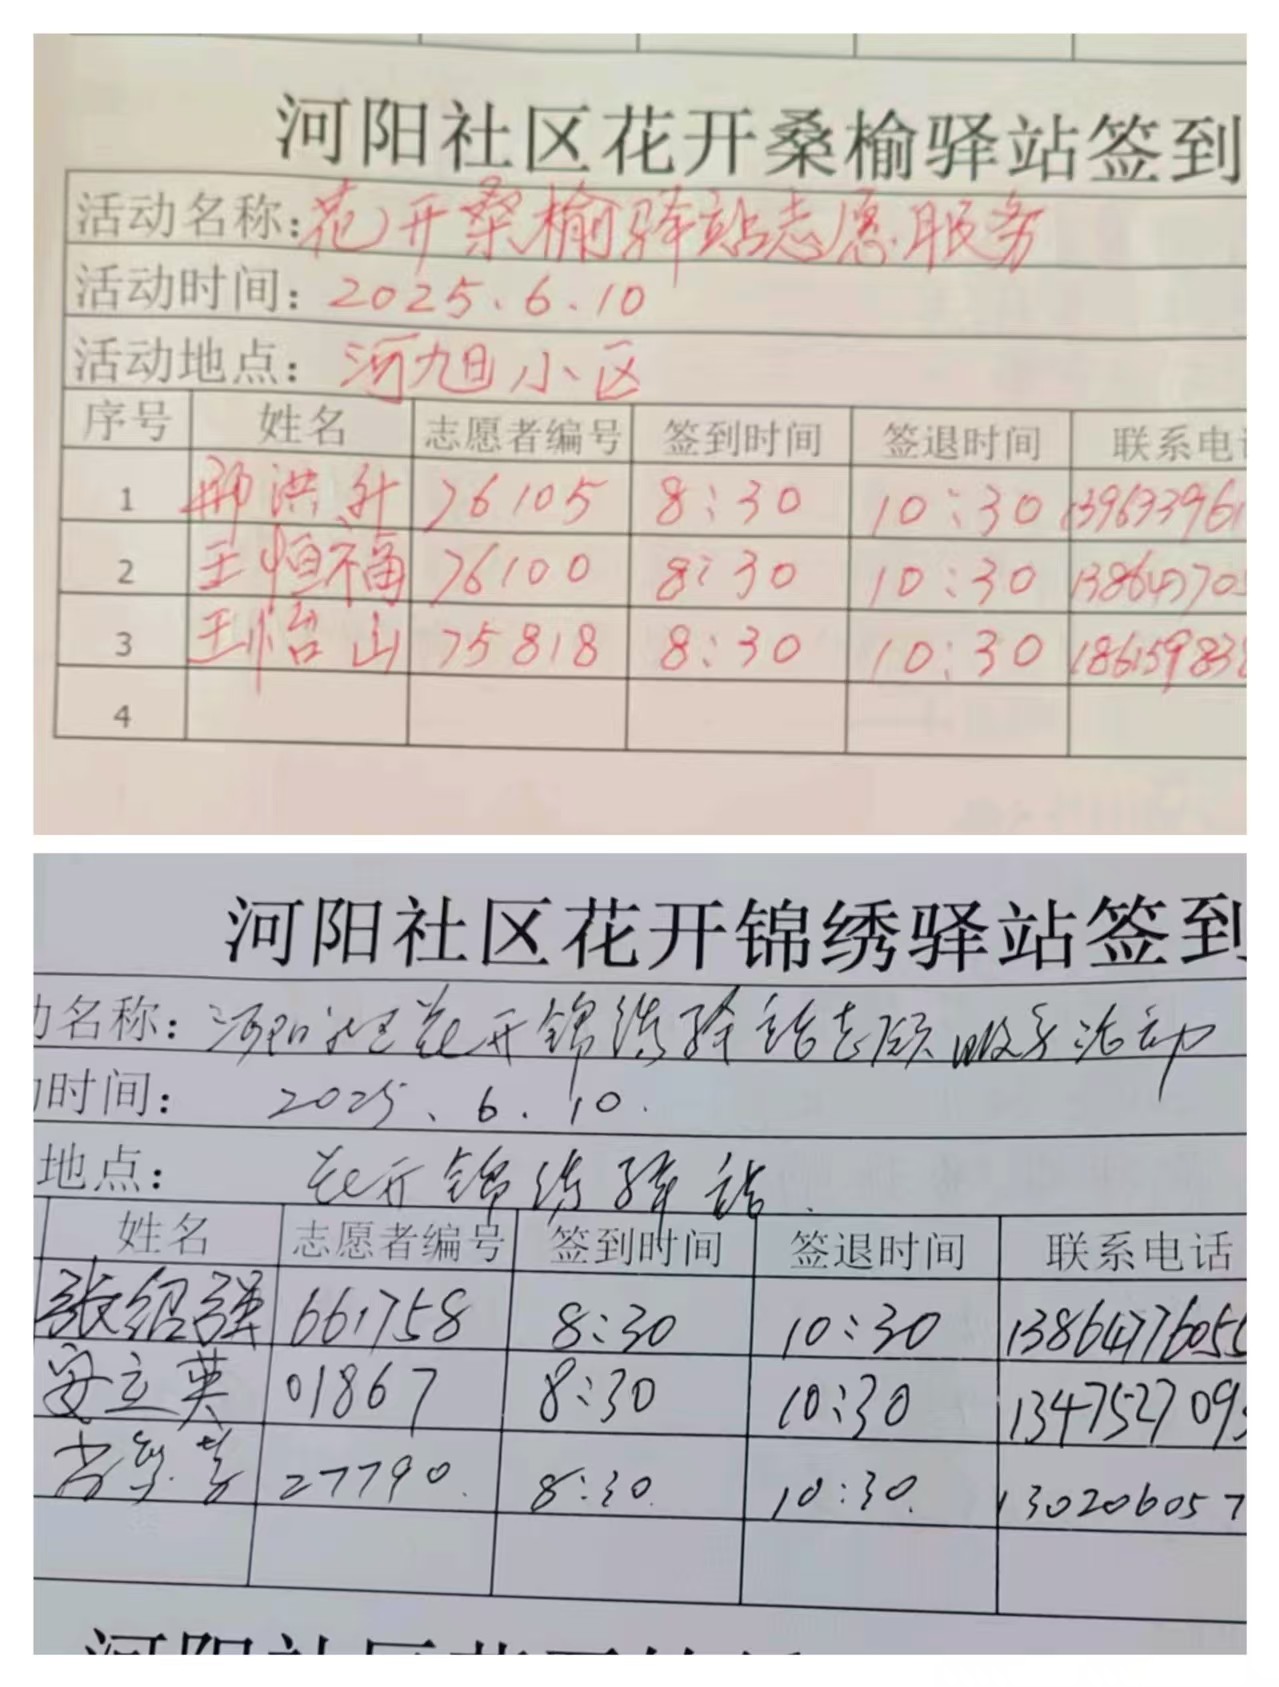 河阳社区花开桑榆驿站签到
活动名称：花开桑榆驿站志愿服务
活动时间：2025.6.10
活动地点：河旭小区
序号 姓名 志愿者编号 签到时间 签退时间 联系电话
1 邢洪升 76105 8:30 10:30
2 王恒福 76100 8:30 10:30
3 王怡山 75818 8:30 10:30
4
河阳社区花开锦绣驿站签到
动名称：河阳社区花开锦绣驿站志愿服务活动
动时间：2025.6.10.
地点：花开锦绣驿站.
姓名 志愿者编号 签到时间 签退时间 联系电话
张绍强 661758 8:30 10:30 1386477605
安立英 01867 8:30 10:30 134752709
27790. 8:30. 10:30. 130206057
河阳社区花开锦绣